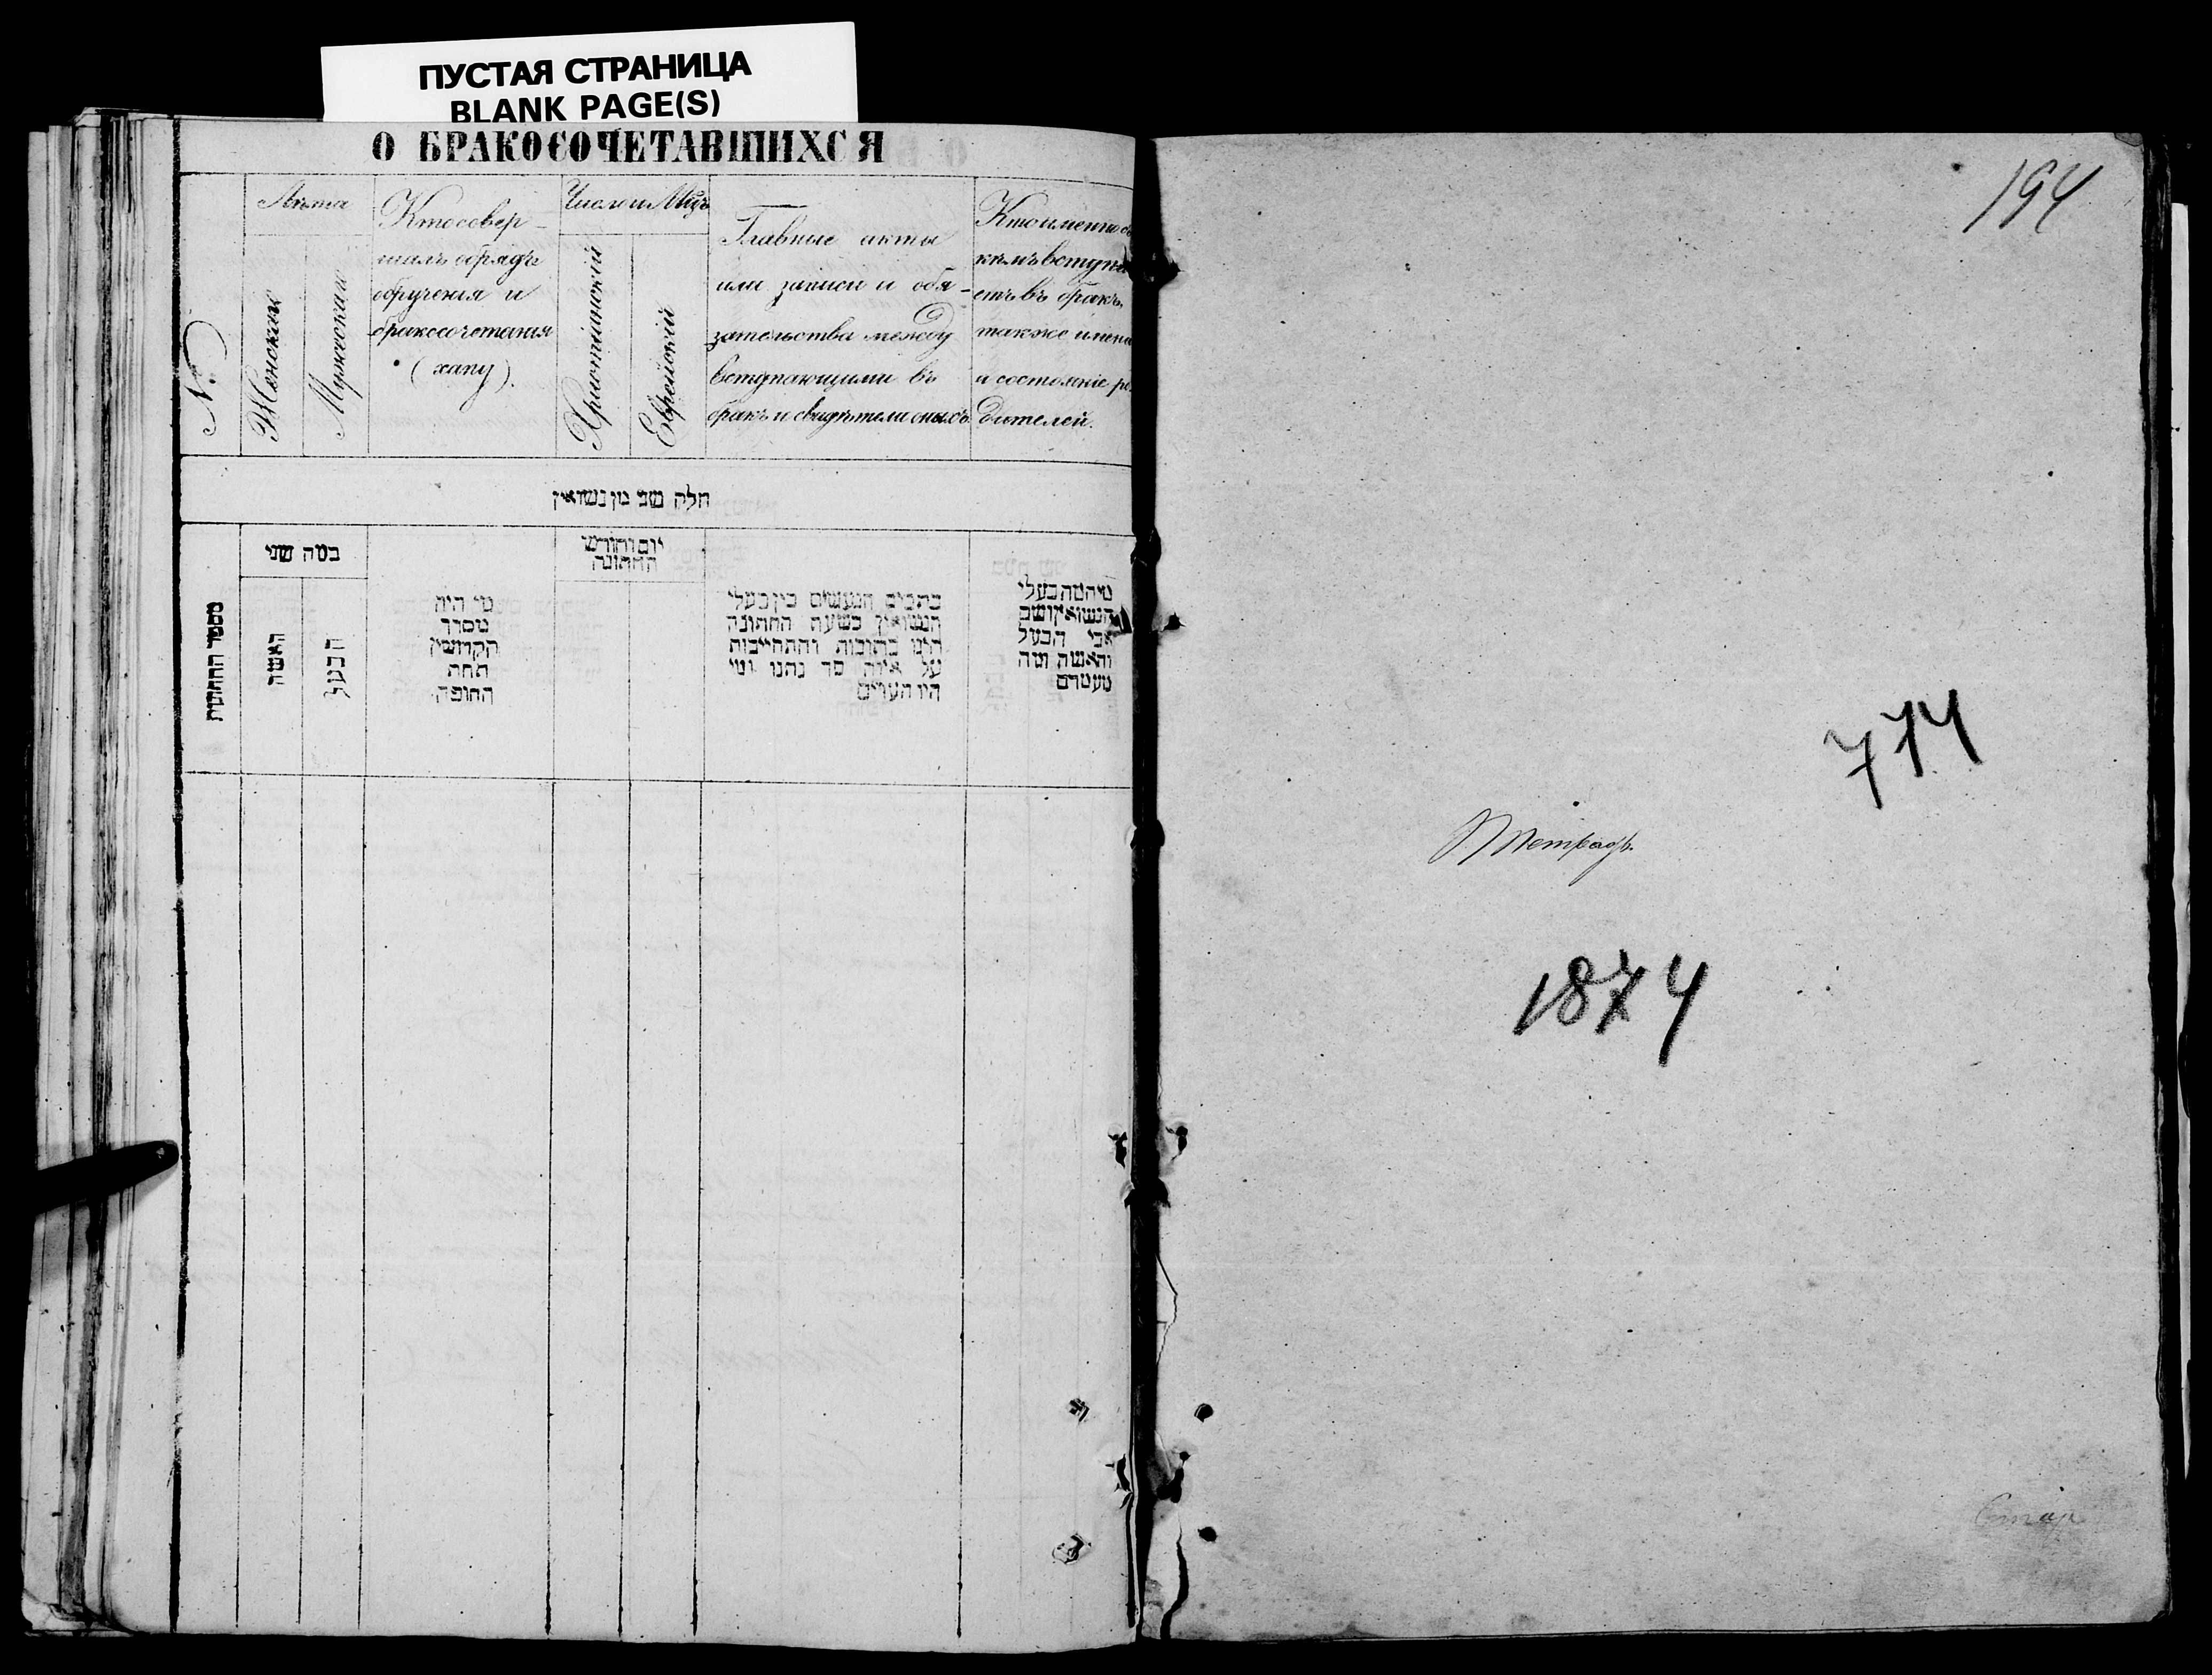 ПУСТАЯ СТРАНИЦА
BLANK PAGE(S)
О БРАКОСОЧЕТАВШИХСЯ
№
Лѣта
Женскаго
Мужескаго
Кто совер-
шалъ обрядъ
обрученія и
бракосочетанія
(хапу).
Число и Мцъ
Христіанскій
Еврейскій
Главные акты
или записи и обя-
зательства между
вступающими въ
бракъ и свидѣтели оныхъ
Кто именно съ
кѣмъ вступа
етъ въ бракъ.
также имена
и состояніе ро
дителей.
חלק שני מן נשואין
מספר החתונות
כמה שני
האשה
הבעל
מי היה
מסדר
הקדושין
תחת
החופה
יום וחודש
החתונה
כתבים הנעשים בין בעלי
הנשואין בשעת החתונה
היינו כתובות והתחייבות
על איזה סך נתנו ומי
היו העדים
מי המה בעלי
הנשואין ושם
אבי הבעל
והאשה ומה
מעמדם
194
714
Тетрадь
1874